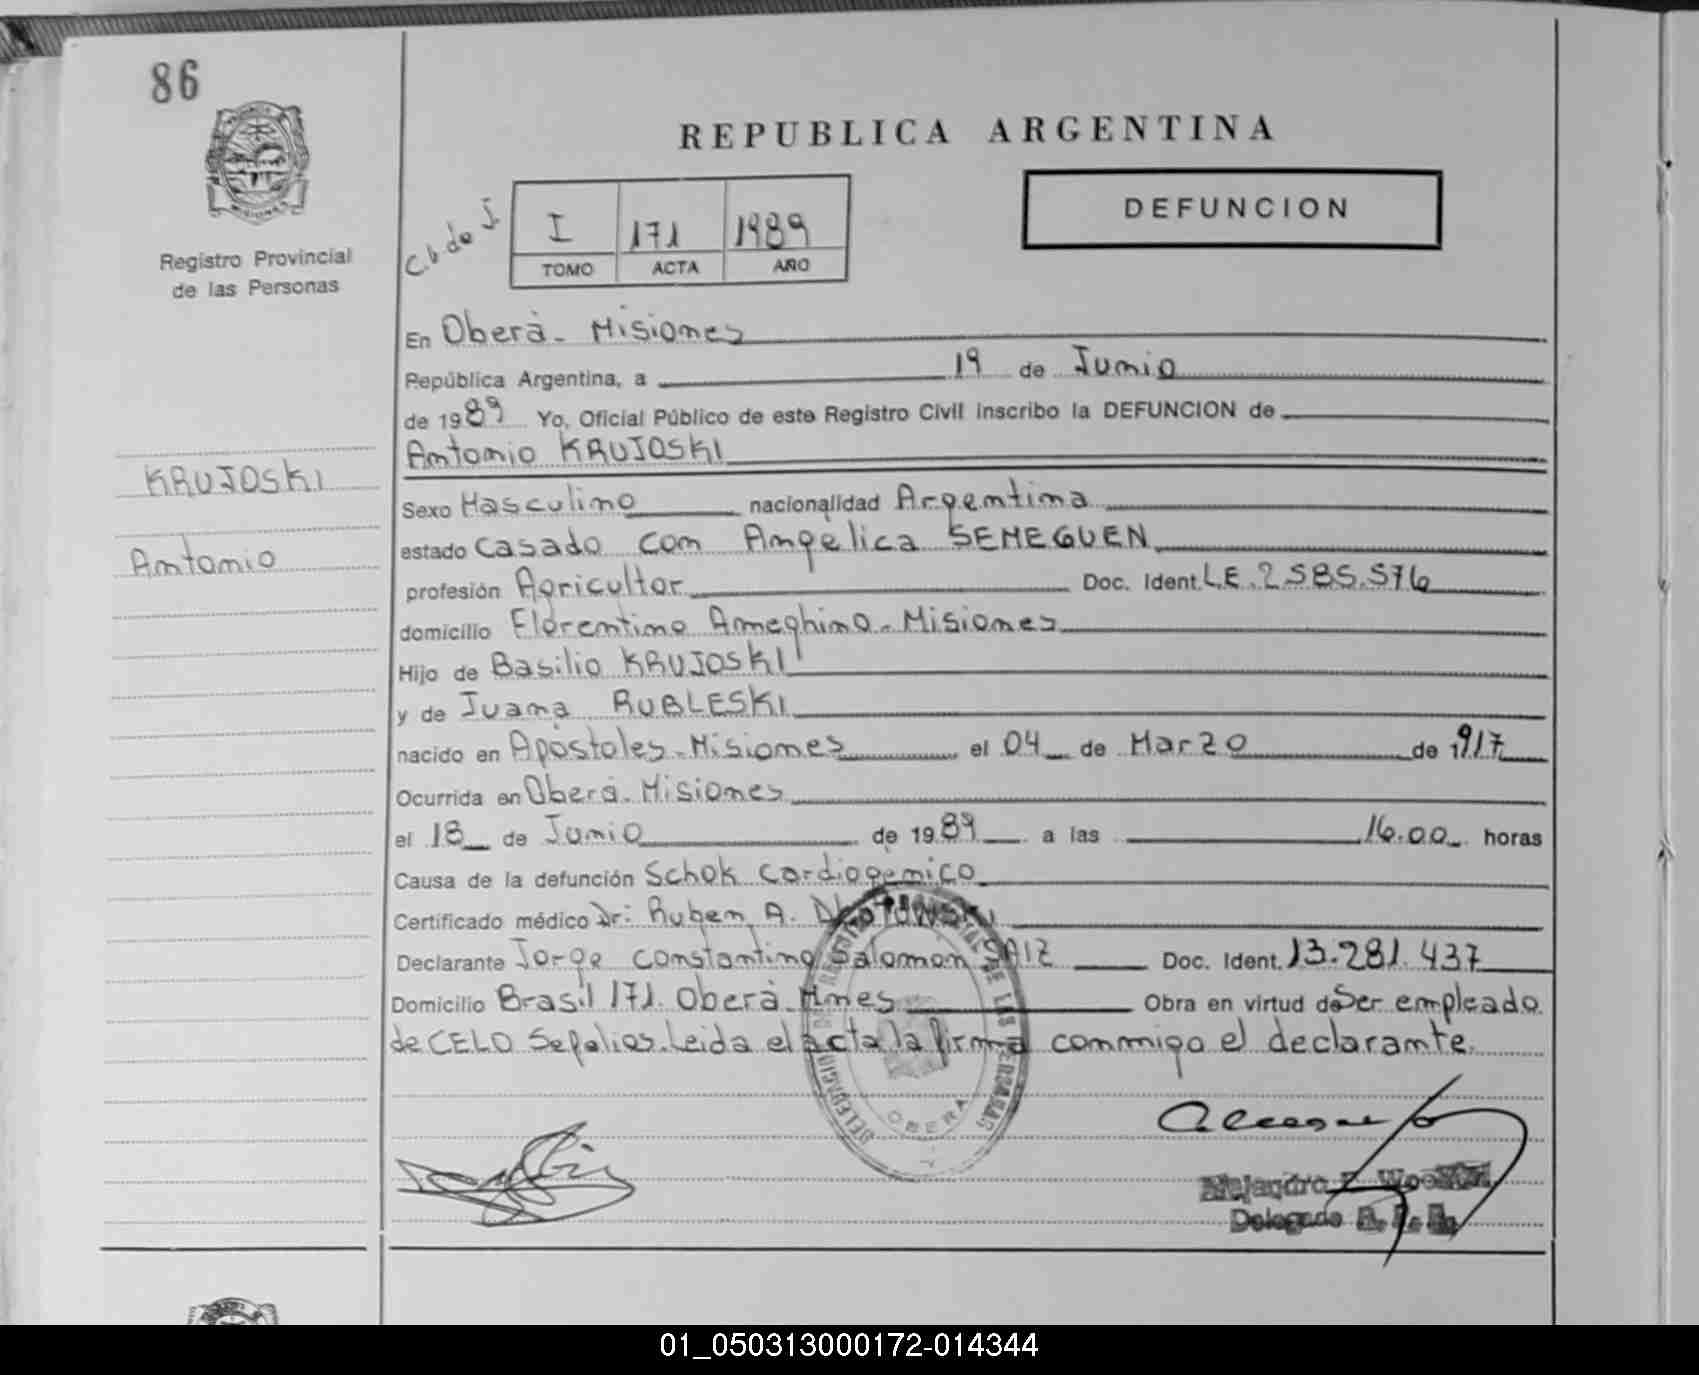 86
MISIONES
Registro Provincial
de las Personas
KRUJOSKI
Antonio
REPUBLICA ARGENTINA
DEFUNCION
C.b.de J.
I 171 1989
TOMO ACTA AÑO
En Oberà - Misiones
República Argentina, a 19 de Junio
de 1989 Yo, Oficial Público de este Registro Civil inscribo la DEFUNCION de
Antonio KRUJOSKI
Sexo Masculino nacionalidad Argentina
estado casado con Angelica SEMEGUEN
profesión Agricultor Doc. Ident. L.E. 2.585.576
domicilio Florentino Ameghino - Misiones
Hijo de Basilio KRUJOSKI
y de Juana RUBLESKI
nacido en Apóstoles - Misiones el 04 de Marzo de 1917
Ocurrida en Oberá - Misiones
el 18 de Junio de 1989 a las 16.00 horas
Causa de la defunción Schok Cardiogenico
Certificado médico Dr: Ruben A.
Declarante Jorge Constantino Salomon SAIZ Doc. Ident. 13.281.437
Domicilio Brasil 171. Oberà Mnes Obra en virtud de Ser empleado
de CELO Sepelios. Leida el acta la firma conmigo el declarante.
DELEGACION DE REGISTRO PROVINCIAL DE LAS PERSONAS
OBERA
Alejandro
Delegado
01_050313000172-014344